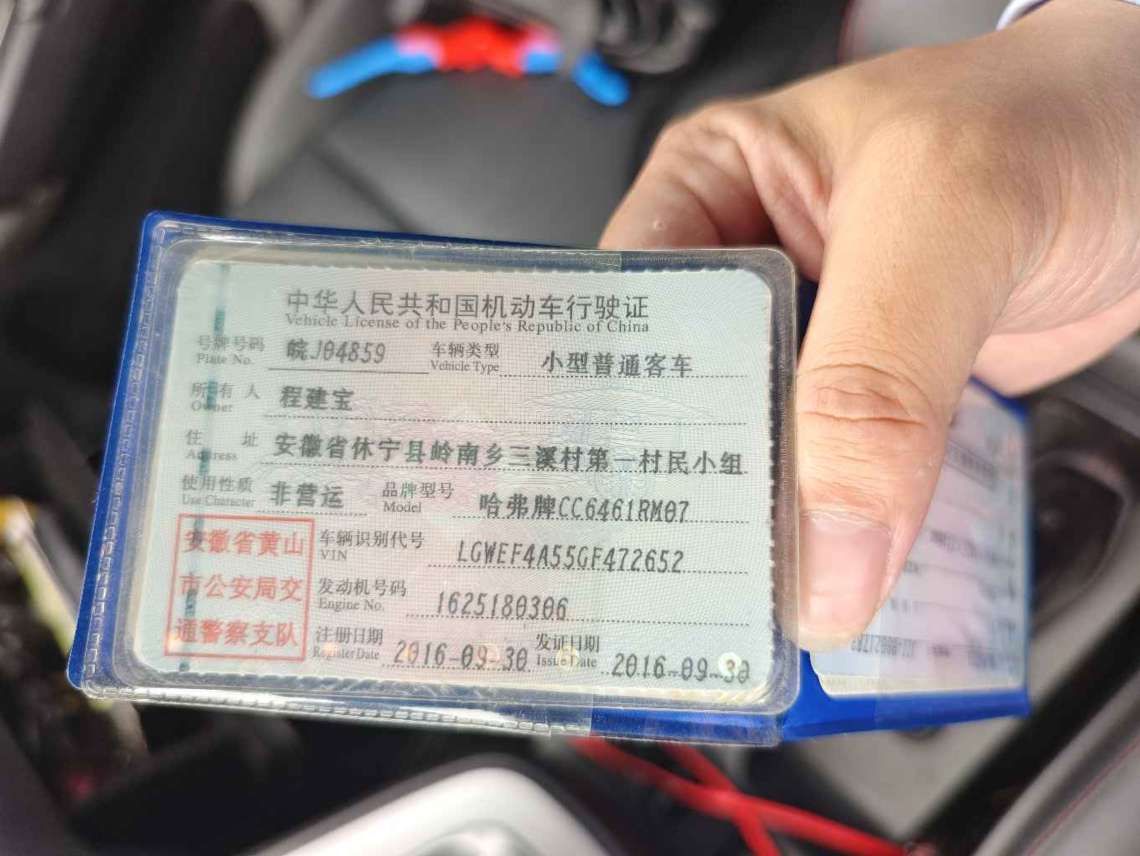 中华人民共和国机动车行驶证
Vehicle License of the People's Republic of China
号牌号码 皖J04859 车辆类型 小型普通客车
Plate No. Vehicle Type
所有人 程建宝
Owner
住址 安徽省休宁县岭南乡三溪村第一村民小组
Address
使用性质 非营运 品牌型号 哈弗牌CC6461RM07
Use Character Model
安徽省黄山
市公安局交
通警察支队
车辆识别代号 LGWEF4A55GF472652
VIN
发动机号码 1625180306
Engine No.
注册日期 2016-09-30 发证日期 2016-09-30
Register Date Issue Date